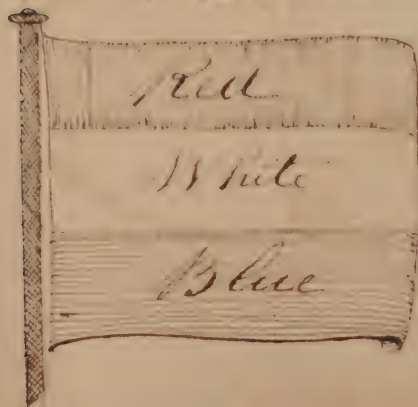 Red
White
Blue